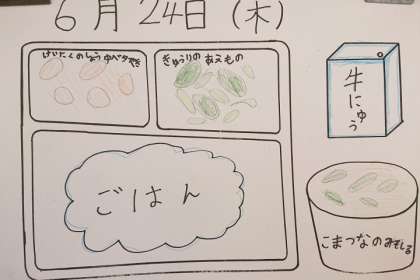 6月24日(木)
のしょうゆ
きゅうりのあえもの
牛にゅう
ごはん
こまつなのみそしる